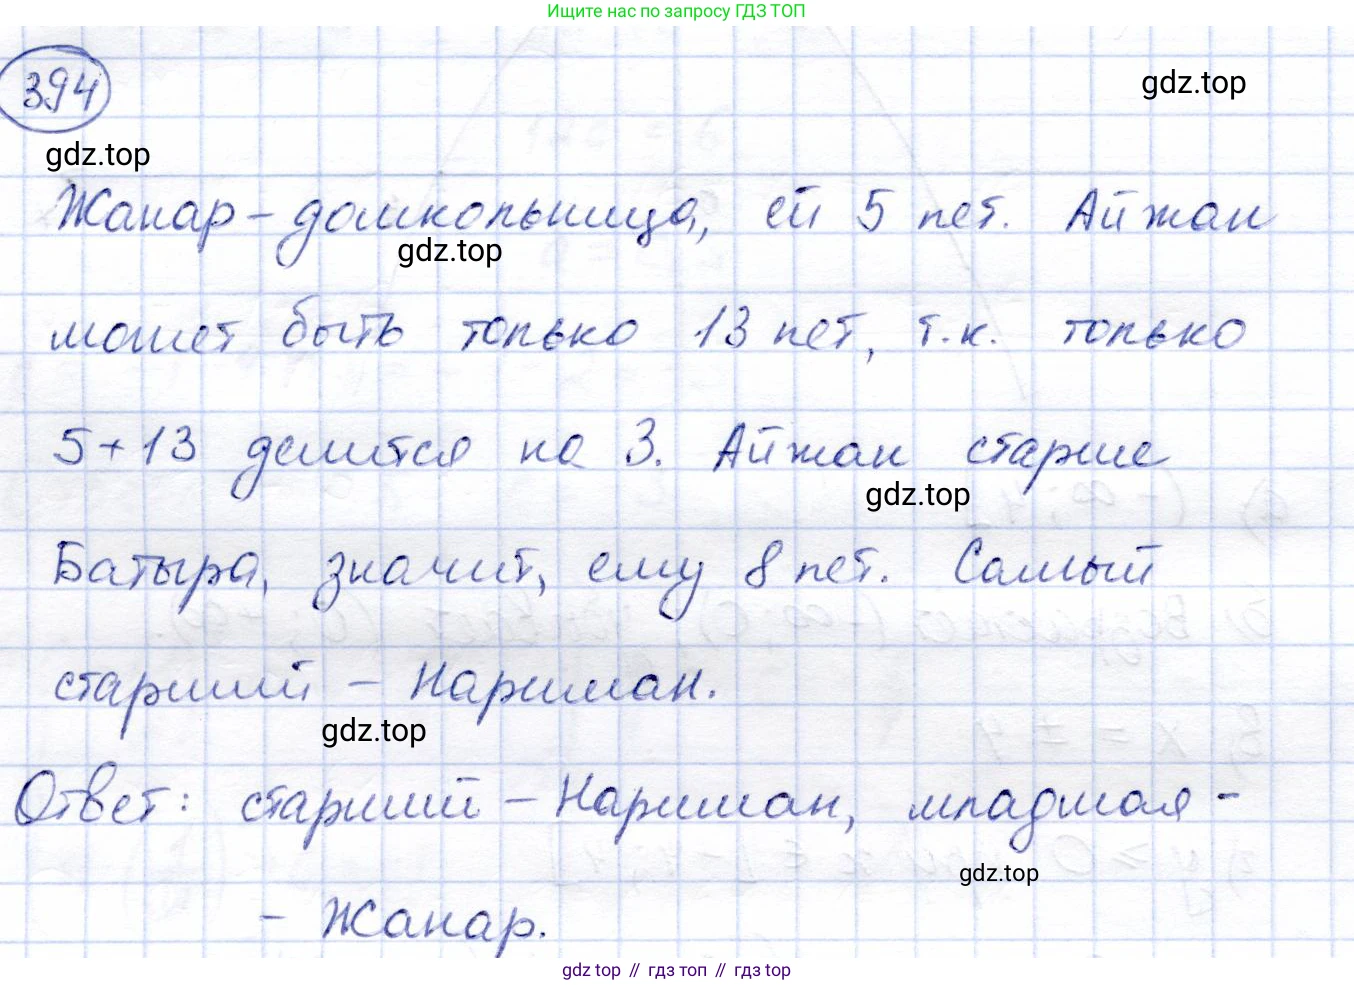 Ищите нас по запросу ГДЗ ТОП
394
gdz.top
gdz.top
Жанар – дошкольница, ей 5 лет. Айжан
gdz.top
может быть только 13 лет, т.к. только
5+13 делится на 3. Айжан старше
gdz.top
Батыра, значит, ему 8 лет. Самый
старший – Нариман.
gdz.top
Ответ: старший – Нариман, младшая –
gdz.top
– Жанар.
gdz top // гдз топ // gdz top